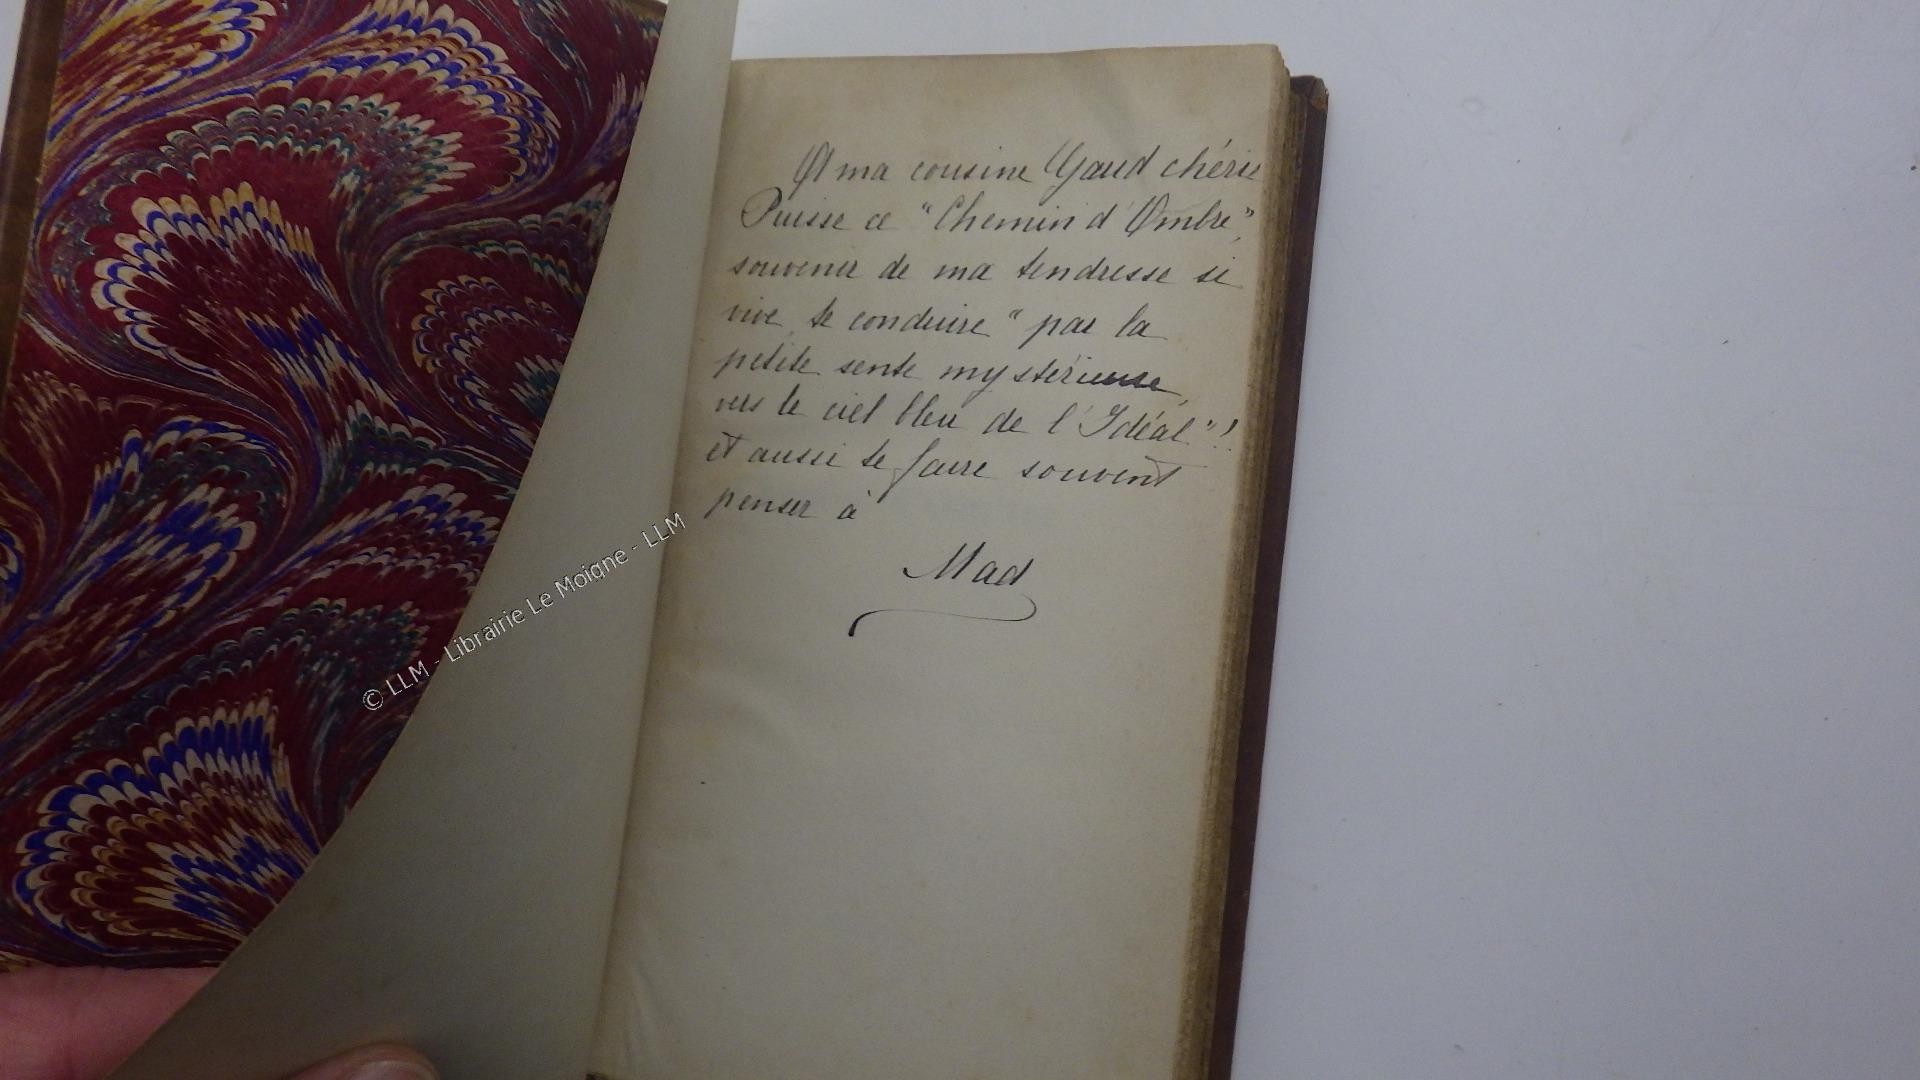 A ma cousine Gaud chérie
Puisse ce "Chemin d'Ombre",
souvenir de ma tendresse si
vive, te conduire "par la
petite sente mystérieuse,
vers le ciel bleu de l'Idéal"!
et aussi te faire souvent
penser à
Mad
© LLM - Librairie Le Moigne - LLM